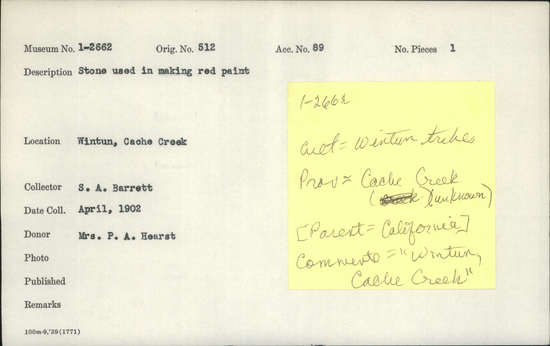 Museum No. 1-2662 Orig. No. 512 Acc. No. 89 No. Pieces 1
Description Stone used in making red paint
Location Wintun, Cache Creek
Collector S. A. Barrett
Date Coll. April, 1902
Donor Mrs. P. A. Hearst
Photo
Published
Remarks
100m-9,'29(1771)
1-2662
Cult = Wintun tribes
Prov = Cache Creek
(unknown)
[Parent = California]
Comments = "Wintun,
Cache Creek"